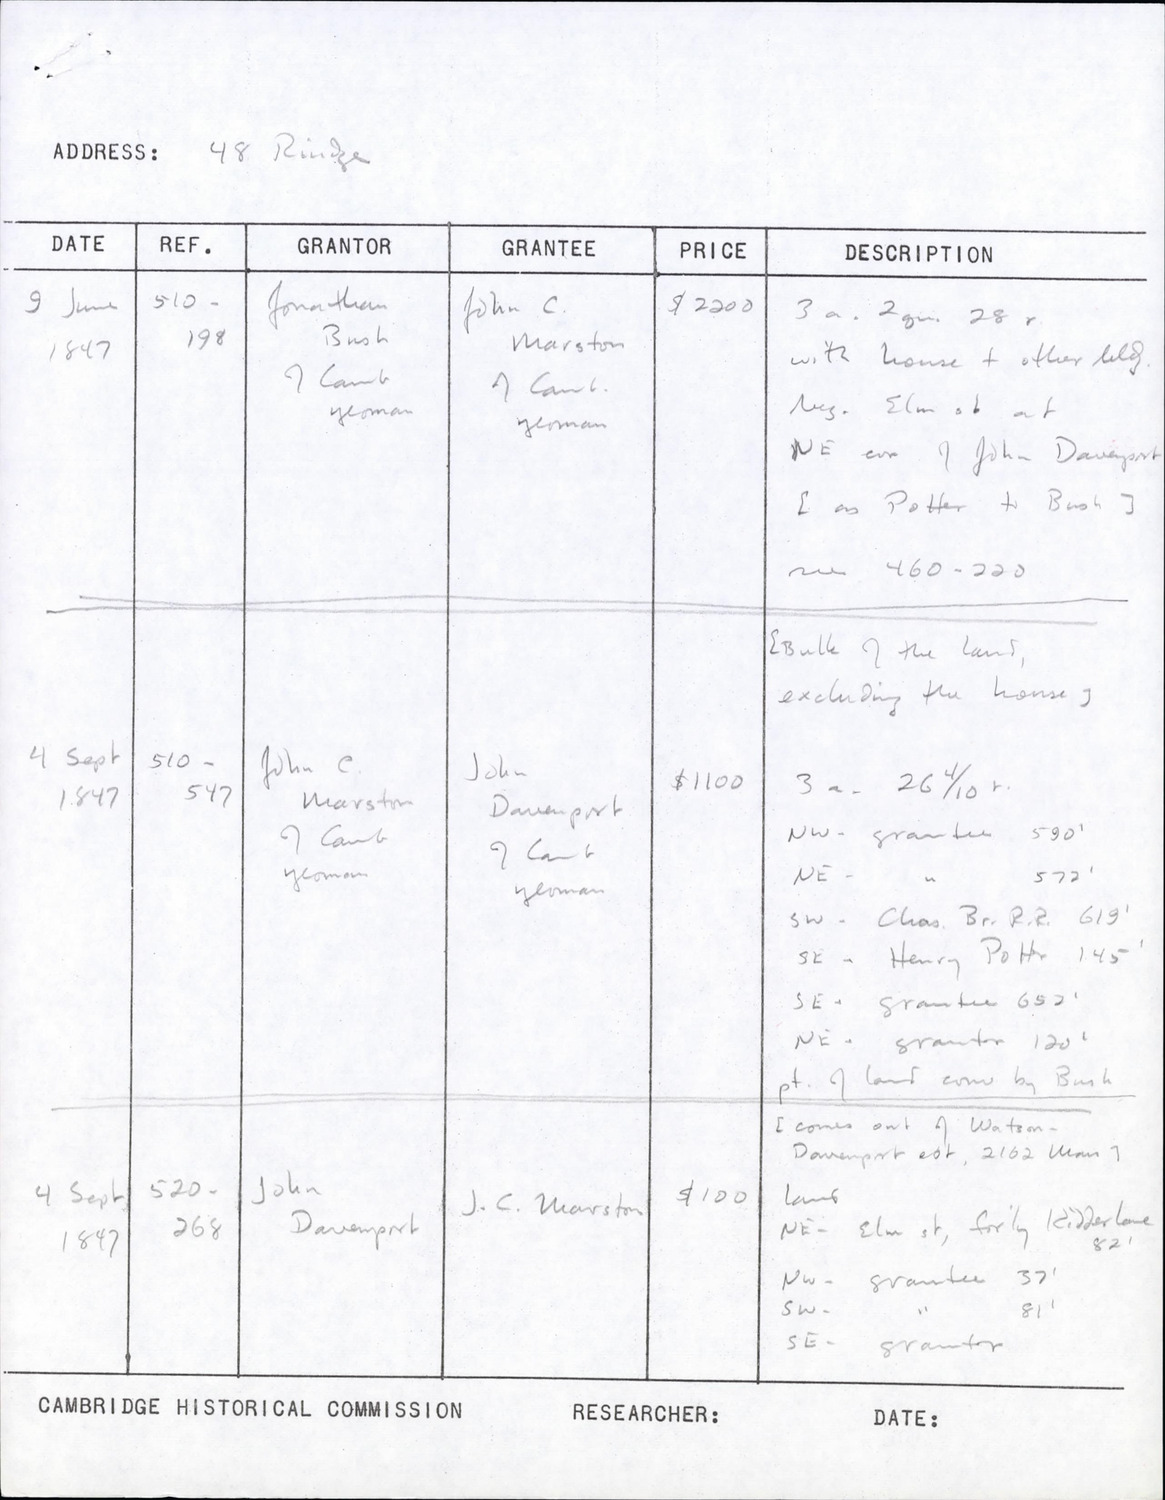 ADDRESS: 48 Rindge
DATE REF. GRANTOR GRANTEE PRICE DESCRIPTION
9 June 510- Jonathan John C. $2200 3 a. 2 qu. 28 r.
1847 198 Bush Marston with house + other bldg.
of Camb of Camb. beg. Elm st at
yeoman yeoman NE cor of John Davenport
[ as Potter to Bush ]
see 460-220
[Bulk of the land,
excluding the house]
4 Sept 510- John C. John $1100 3 a. 26 4/10 r.
1847 547 Marston Davenport NW- grantee 590'
of Camb of Camb NE - " 572'
yeoman yeoman SW - Chas. Br. R.R. 619'
SE - Henry Pottr 145'
SE - grantee 652'
NE - grantor 120'
pt. of land conv by Bush
[comes out of Watson-
Davenport est, 2162 Mass]
4 Sept 520- John J. C. Marston $100 land
1847 268 Davenport NE- Elm st, for'ly Kidder Lane
82'
NW- grantee 37'
SW- " 81'
SE- grantor
CAMBRIDGE HISTORICAL COMMISSION RESEARCHER: DATE: